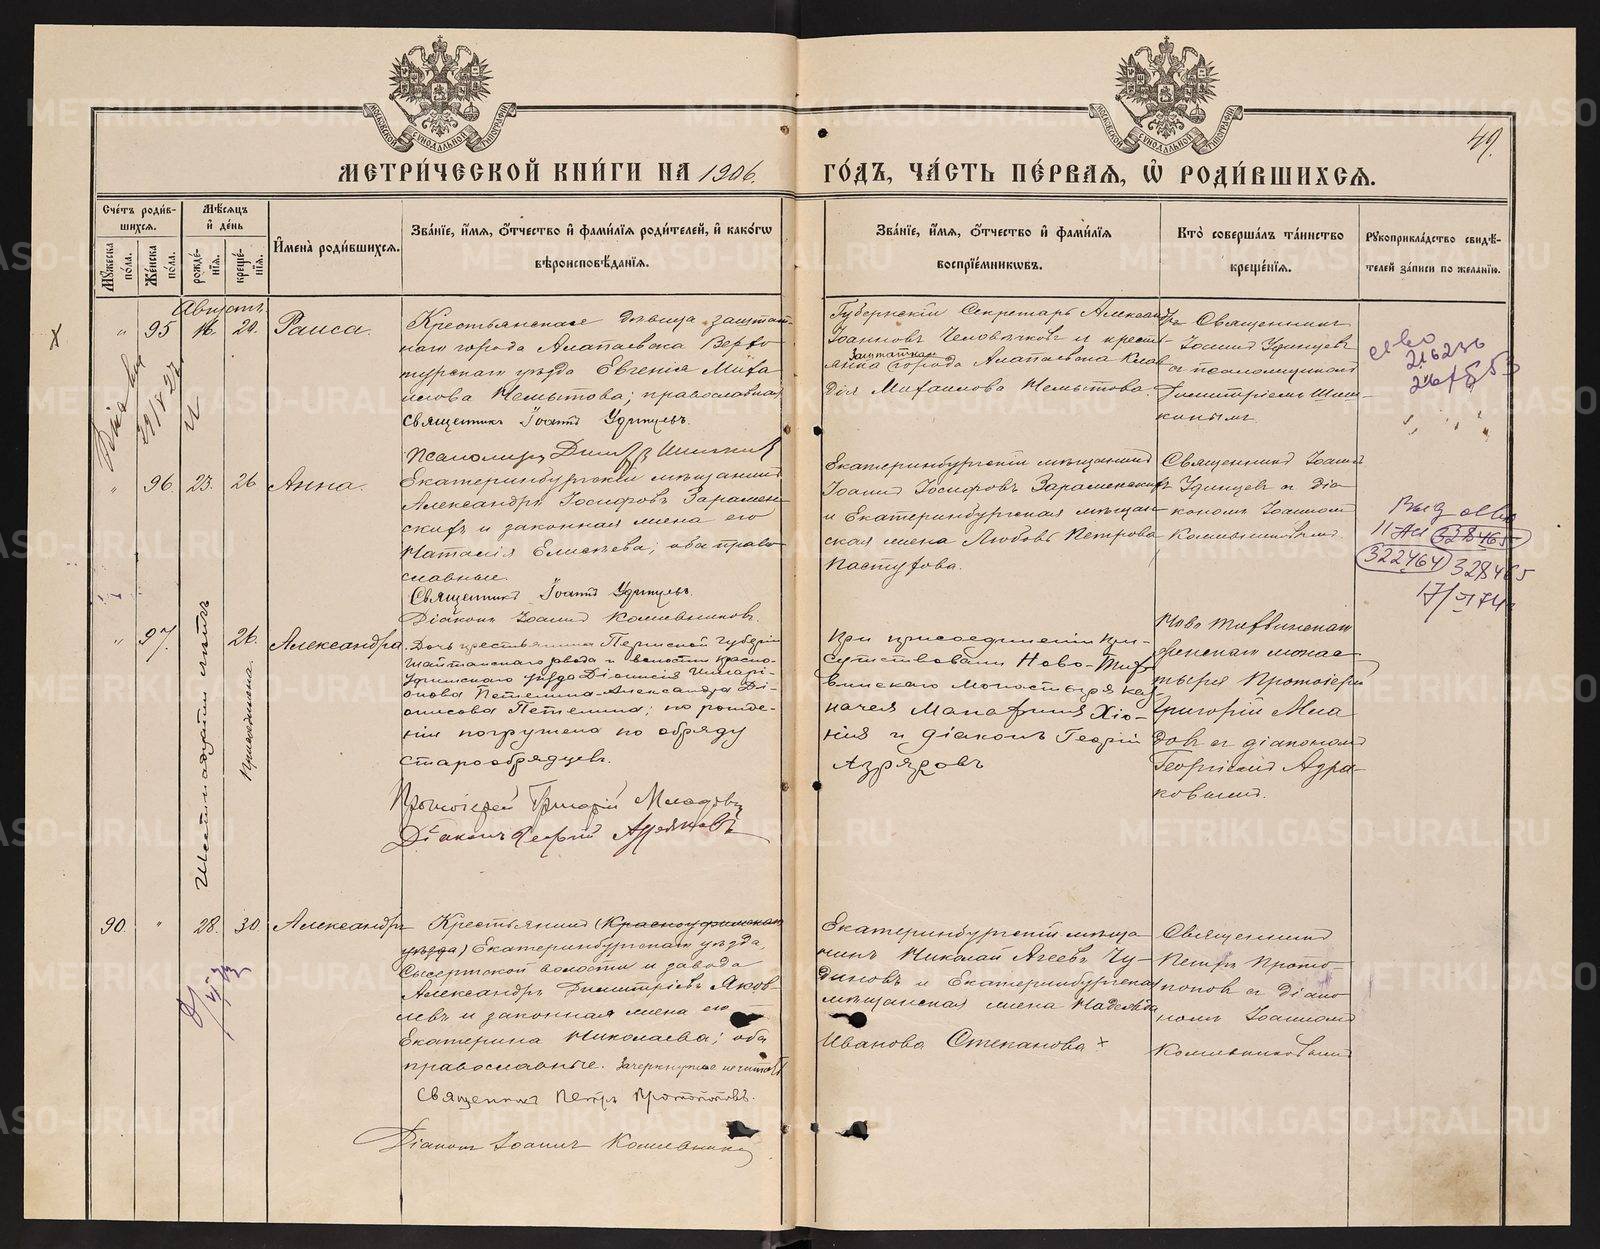 МЕТРИ́ЧЕСКОЙ КНИ́ГИ НА 1906.
ГО́ДЪ, ЧА́СТЬ ПЕ́РВАѦ, Ѡ҆ РОДИ́ВШИХСѦ.
49.
Сче́тъ роди́вшихсѧ.
Мꙋ́жеска по́ла.
Же́нска по́ла.
Мѣ́сѧцъ и҆ де́нь
рожде́нїѧ.
креще́нїѧ.
И҆мена̀ роди́вшихсѧ.
Зва́нїе, и҆́мѧ, ѻ҆́тчество и҆ фами́лїѧ роди́телей, и҆ како́гѡ
вѣроисповѣ́данїѧ.
Зва́нїе, и҆́мѧ, ѻ҆́тчество и҆ фами́лїѧ
воспрїе́мникѡвъ.
Кто̀ соверша́лъ та́инство
креще́нїѧ.
Рꙋкоприкла́дство свидѣ́телей за́писи по жела́нїю.
Августъ
" 95 16. 20. Раиса.
Крестьянская дѣвица заштатнаго города Алапаевска Верхо
турскаго уѣзда Евгенія Миха
илова Немытова; православная
Священникъ Іоаннъ Удинцевъ.
Псаломщ. Дим. Шишкинъ
Губернскій Секретарь Александръ
Іоанновъ Человѣчковъ и крестьянка заштатнаго города Алапаевска Клав
дія Михаилова Немытова.
Священникъ
Іоаннъ Удинцевъ
съ псаломщикомъ
Димитріемъ Шиш
кинымъ
" 96 23. 26 Анна.
Екатеринбургскій мѣщанинъ
Александръ Іосифовъ Зарамен
скихъ и законная жена его
Наталія Елисѣева; оба право
славные.
Священникъ Іоаннъ Удинцевъ.
Діаконъ Іоаннъ Кожевниковъ.
Екатеринбургскій мѣщанинъ
Іоаннъ Іосифовъ Зараменскихъ
и Екатеринбургская мѣщан
ская жена Любовь Петрова
Пастухова.
Священникъ Іоаннъ
Удинцевъ съ діа
кономъ Іоанномъ
Кожевниковымъ
328465
322464 328465
" 97. 26. Александра
Шестнадцати лѣтъ
Присоединена.
Дочь крестьянина Пермской губерніи
Шайтанскаго завода и волости Красно-
уфимскаго уѣзда Діонисія Иларі-
онова Петелина - Александра Ді-
онисова Петелина; по рожде-
ніи погружена по обряду
старообрядцевъ.
Протоіерей Григорій Младовъ
Діаконъ Георгій
При присоединеніи при-
сутствовали Ново-Тих
винскаго монастыря каз
начея Монахиня Хіо-
нія и діаконъ Георгій
Ново Тихвинскаго
женскаго монас
тыря Протоіерей
Григорій Мла
довъ съ діакономъ
Георгіемъ
90. " 28. 30 Александръ
Крестьянинъ (Красноуфимскаго
уѣзда) Екатеринбургскаго уѣзда,
Сысертской волости и завода
Александръ Димитріевъ Яков-
левъ и законная жена его
Екатерина Николаева; оба
православные. Зачеркнутое не читать
Священникъ Петръ Протопоповъ.
Діаконъ Іоаннъ Кожевниковъ
Екатеринбургскій мѣща
нинъ Николай Агеевъ Чу-
диновъ и Екатеринбургская
мѣщанская жена Надежда
Иванова Степанова ×
Священникъ
Петръ Прото-
поповъ съ діако
номъ Іоанномъ
Кожевниковымъ
METRIKI.GASO-URAL.RU